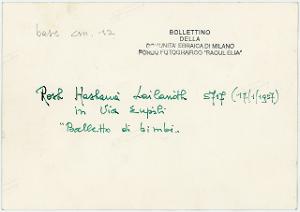 base cm. 12
BOLLETTINO
DELLA
COMUNITA' EBRAICA DI MILANO
FONDO FOTOGRAFICO "RAOUL ELIA"
Rosh Hashanà Lailanoth 5717 (17/1/1957)
in Via Eupili
"Balletto di bimbi„